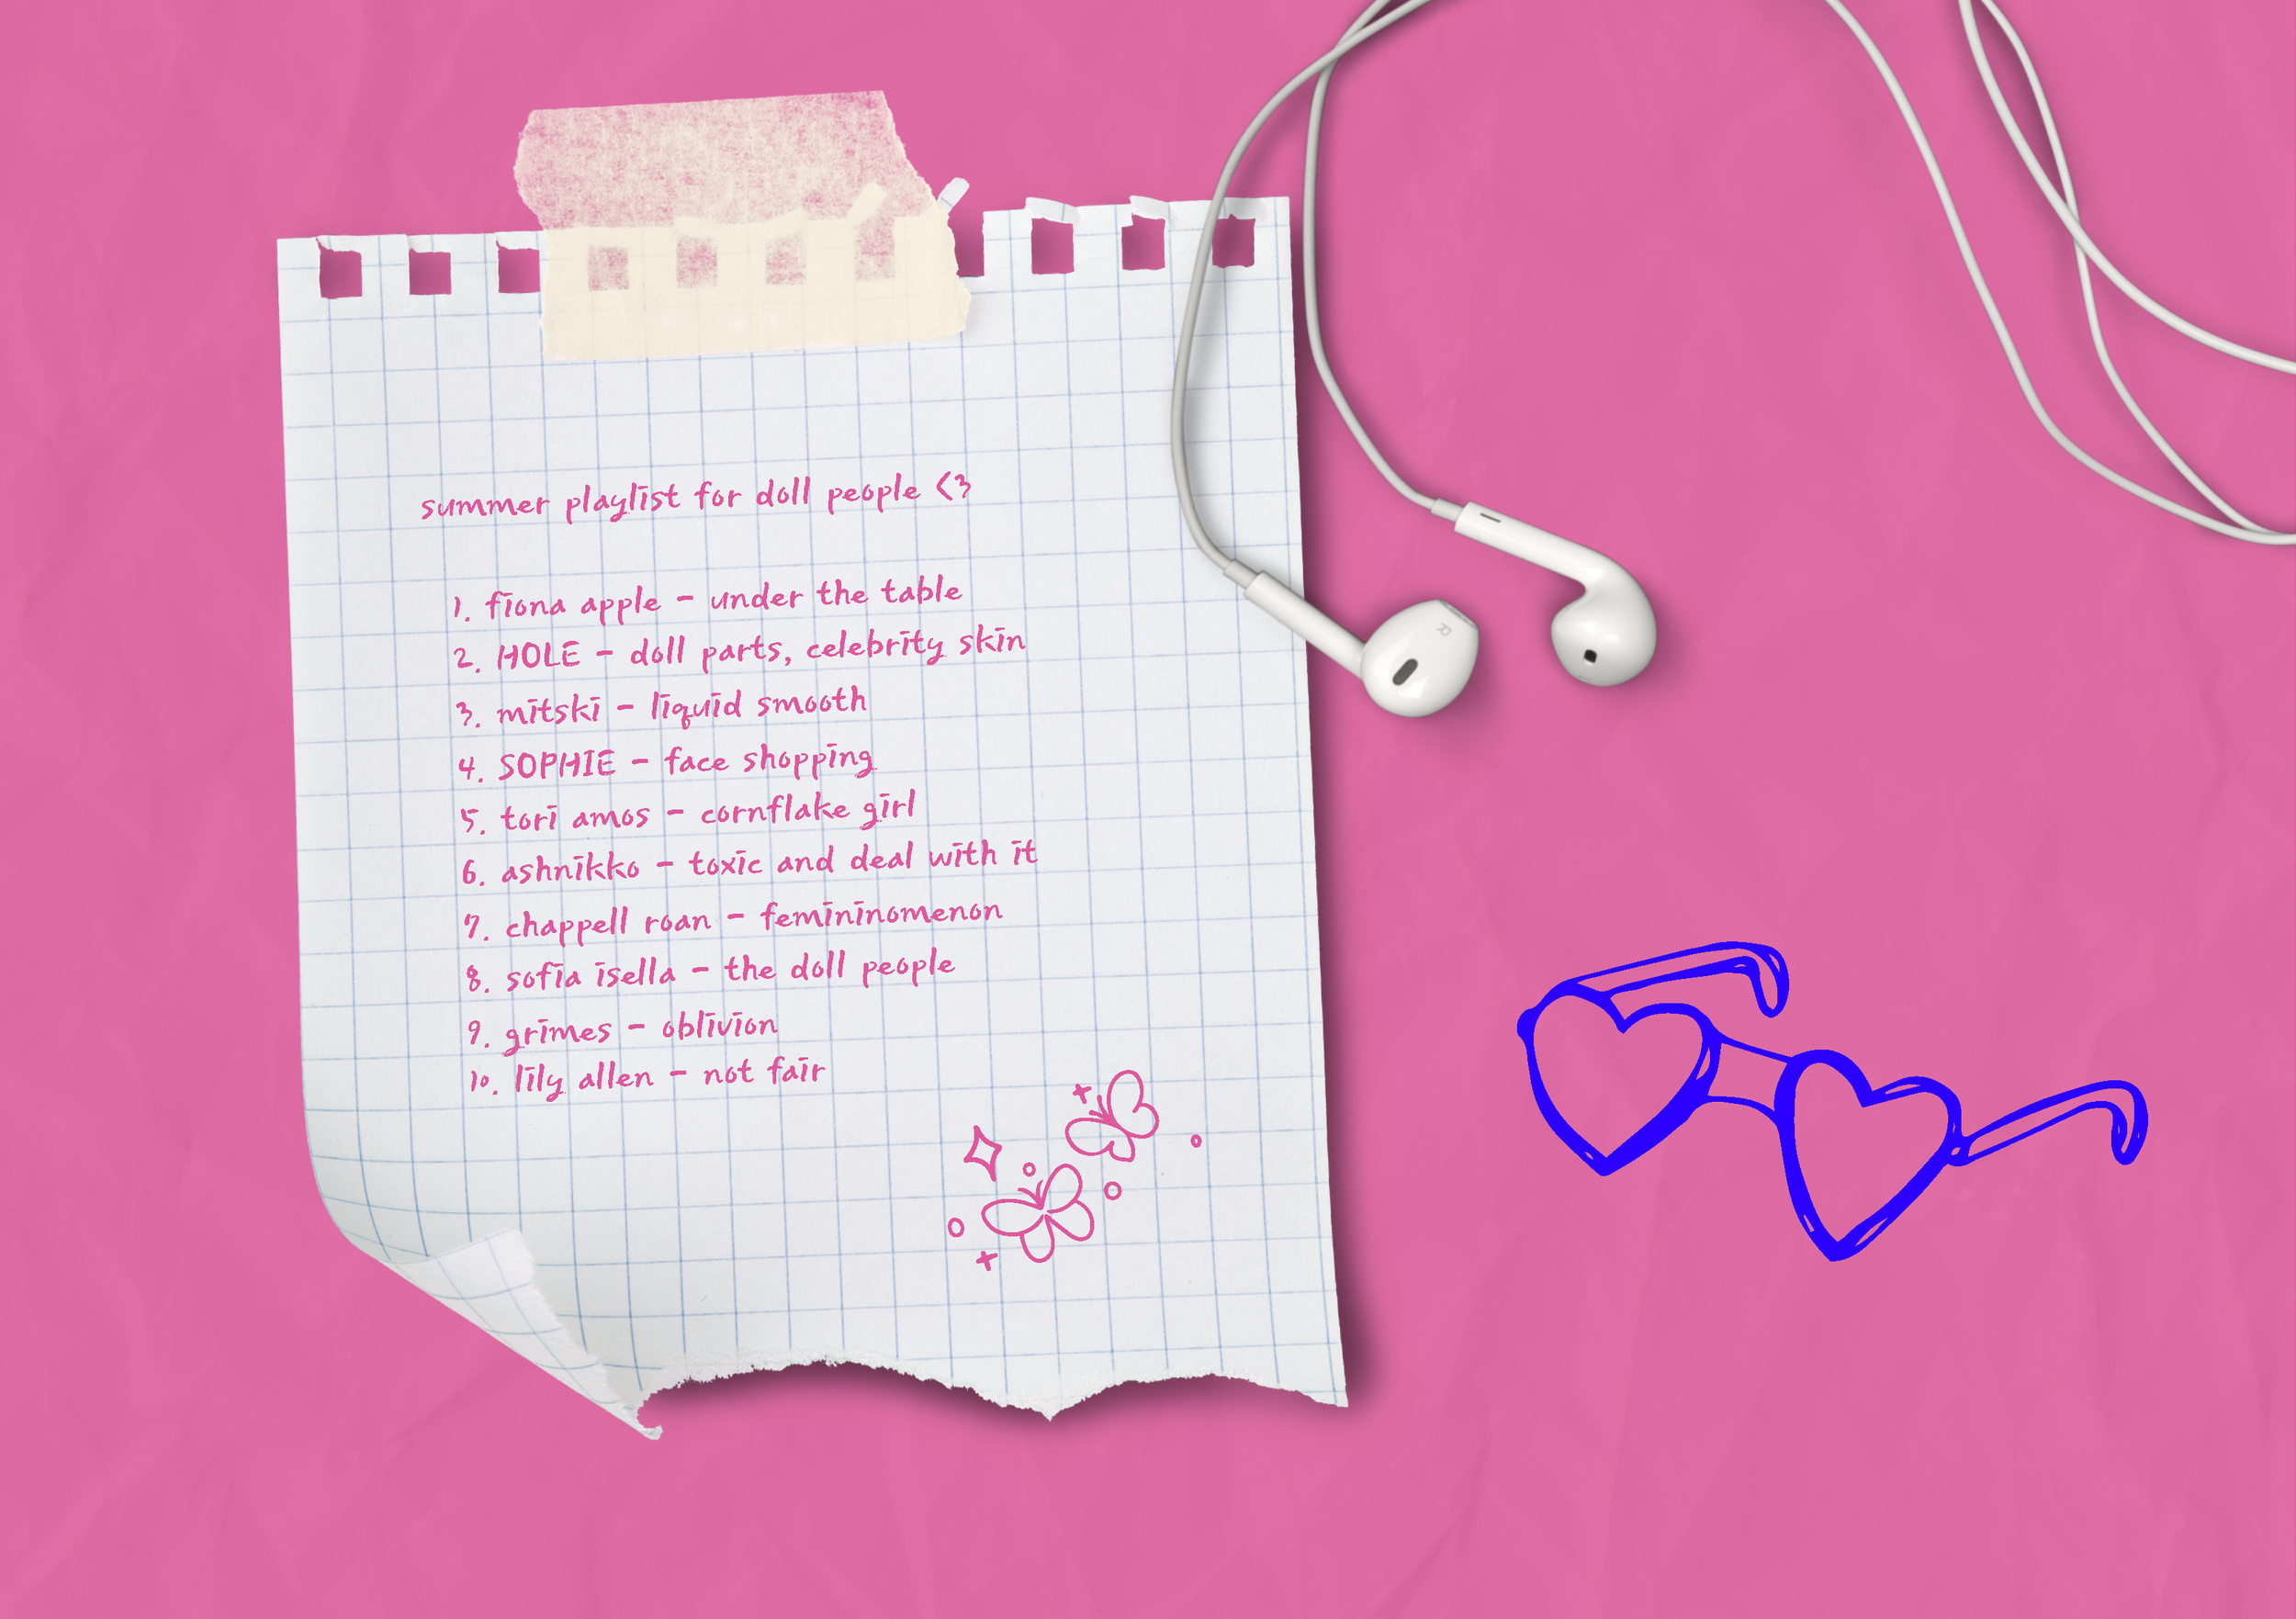 summer playlist for doll people <3
1. fiona apple - under the table
2. HOLE - doll parts, celebrity skin
3. mitski - liquid smooth
4. SOPHIE - face shopping
5. tori amos - cornflake girl
6. ashnikko - toxic and deal with it
7. chappell roan - femininomenon
8. sofia isella - the doll people
9. grimes - oblivion
10. lily allen - not fair
R